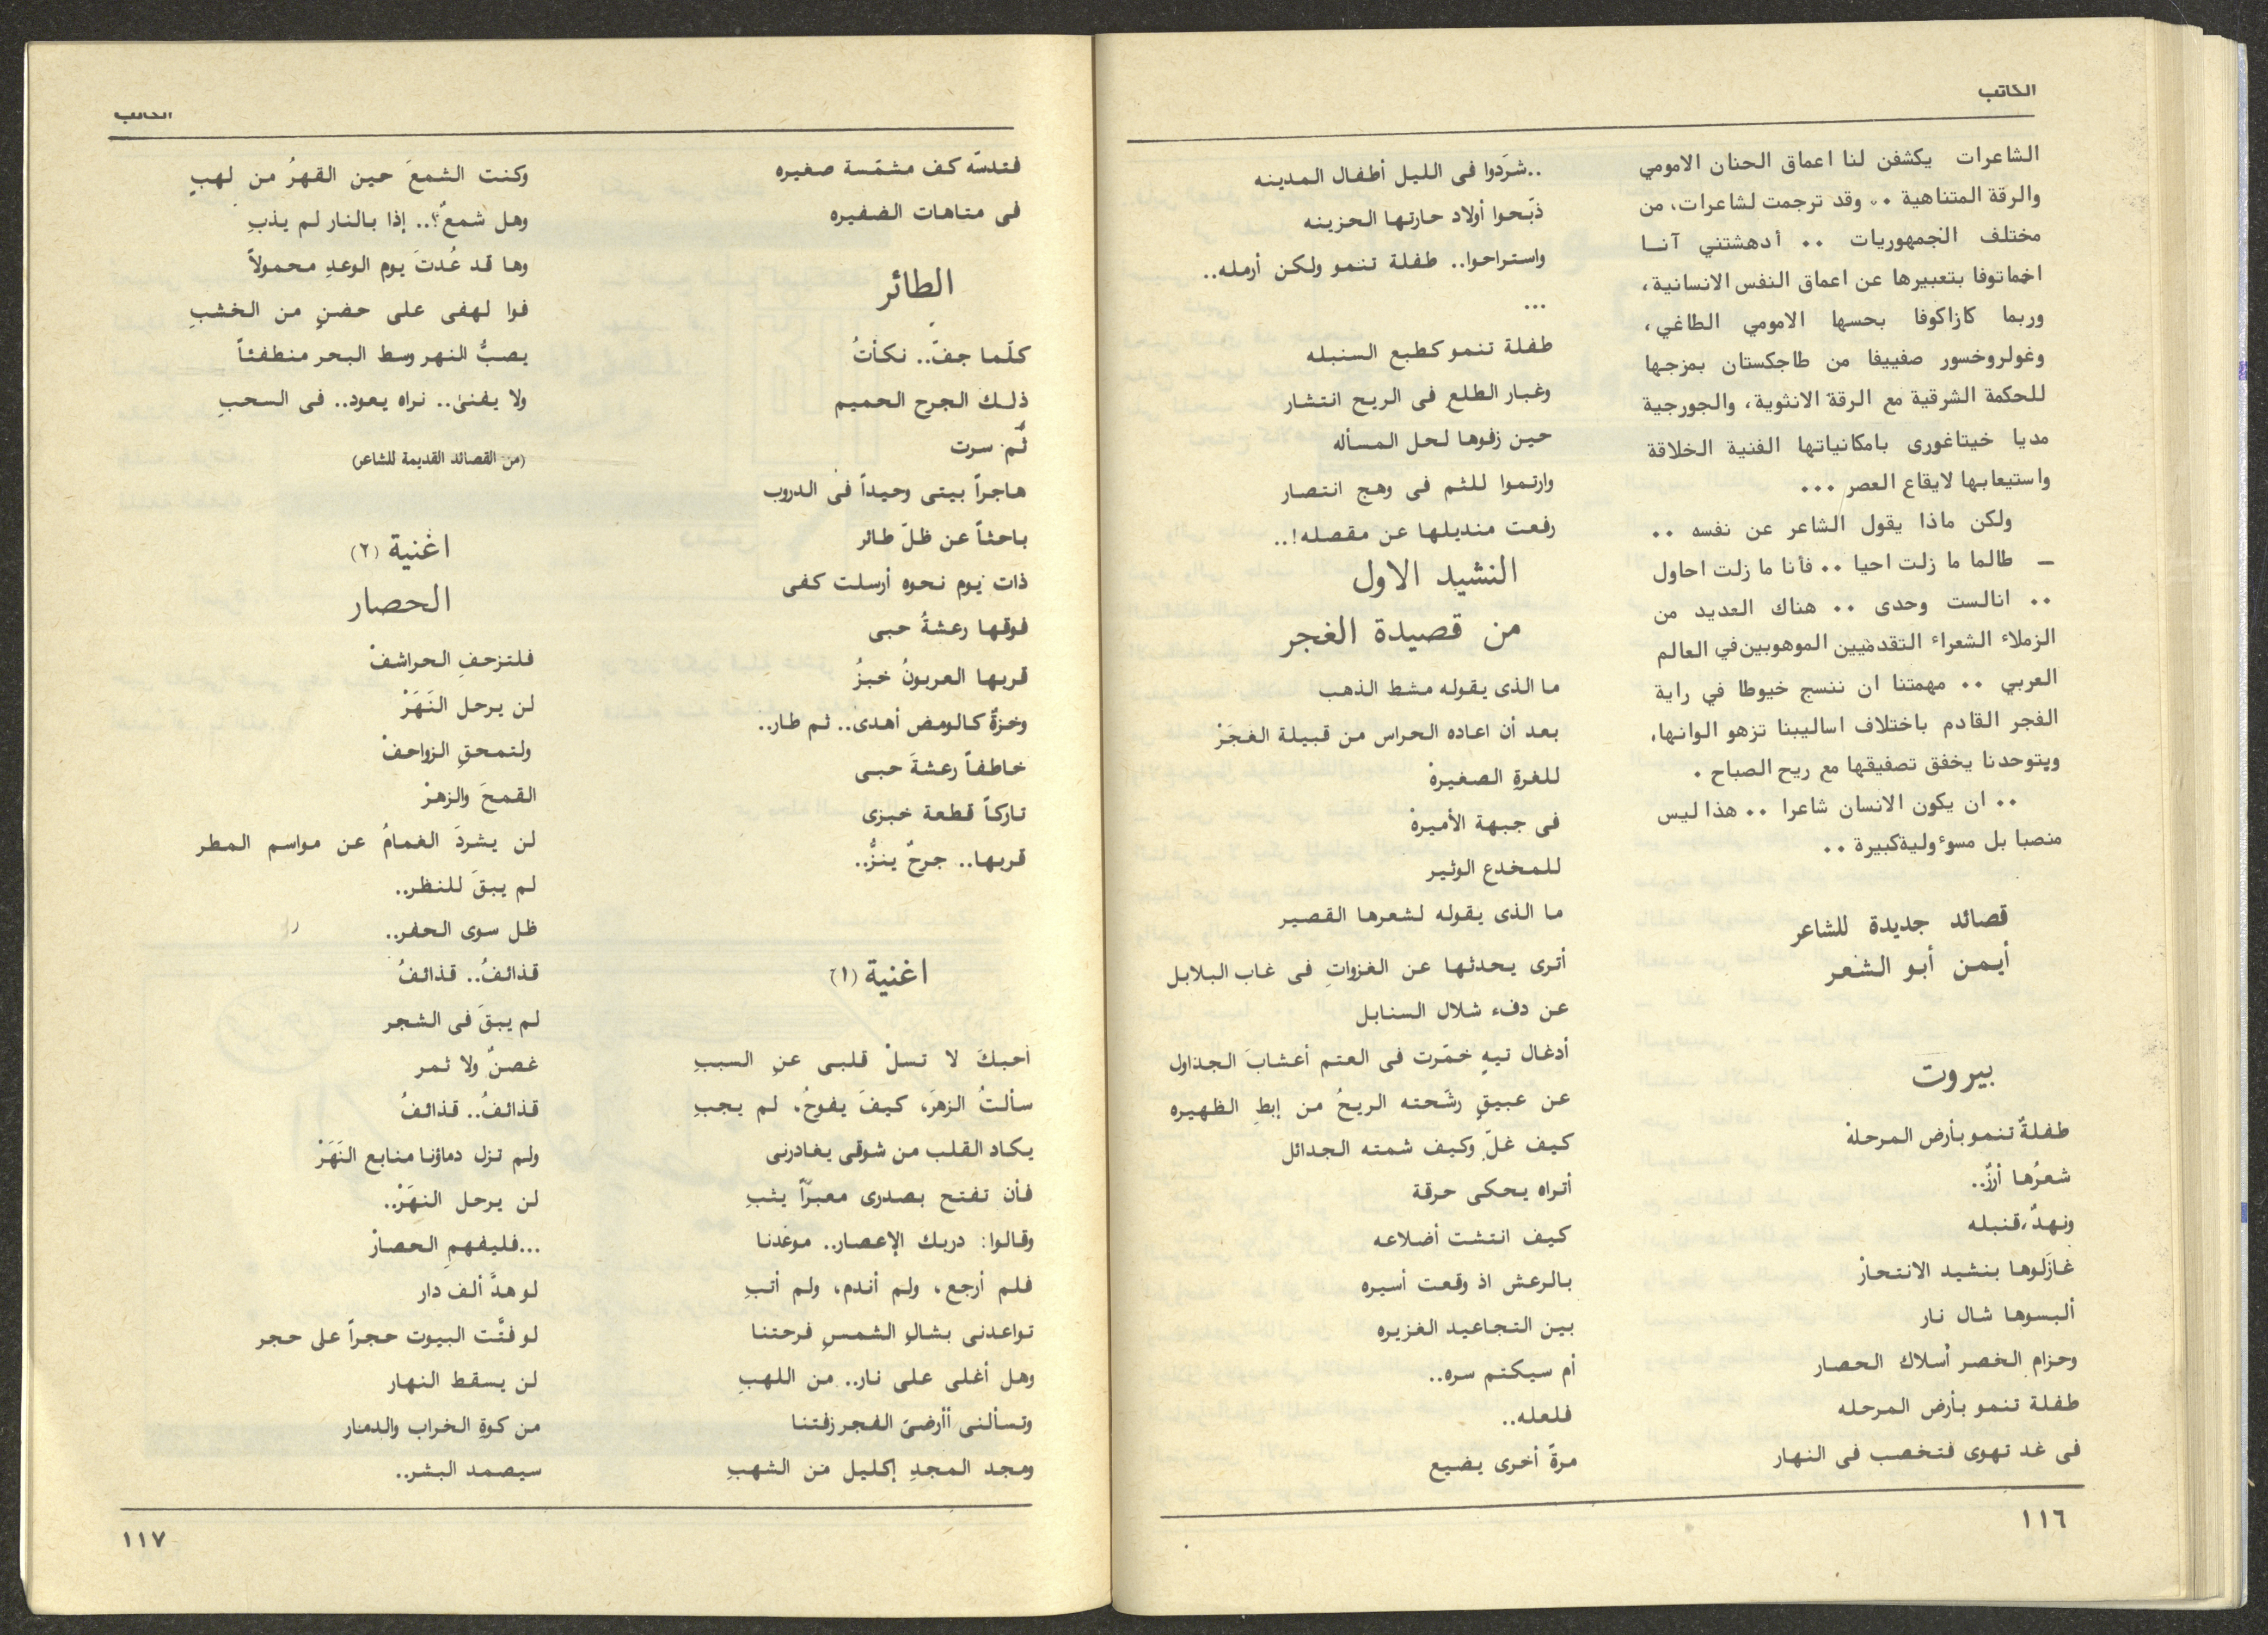 الكاتب
الشاعرات يكشفن لنا اعماق الحنان الامومي
والرقة المتناهية .. وقد ترجمت لشاعرات، من
مختلف الجمهوريات .. أدهشتني آنا
اخماتوفا بتعبيرها عن اعماق النفس الانسانية،
وربما كازاكوفا بحسها الامومي الطاغي،
وغولروخسور صفييفا من طاجكستان بمزجها
للحكمة الشرقية مع الرقة الانثوية، والجورجية
مديا خيتاغورى بامكانياتها الفنية الخلاقة
واستيعابها لايقاع العصر ...
ولكن ماذا يقول الشاعر عن نفسه ..
ــ طالما ما زلت احيا .. فأنا ما زلت احاول
.. انالست وحدى .. هناك العديد من
الزملاء الشعراء التقدميين الموهوبين في العالم
العربي .. مهمتنا ان ننسج خيوطا في راية
الفجر القادم باختلاف اساليبنا تزهو الوانها،
وبتوحدنا يخفق تصفيقها مع ريح الصباح .
.. ان يكون الانسان شاعرا .. هذا ليس
منصبا بل مسوءولية كبيرة ..
قصائد جديدة للشاعر
أيمن أبو الشعر
بيروت
طفلةٌ تنمو بأرض المرحلهْ
شعرُها أرزٌ..
ونهدٌ، قنبله
غازَلوها بنشيد الانتحارْ
ألبسوها شال نار
وحزام الخصر أسلاك الحصار
طفلة تنمو بأرض المرحله
فى غد تهوى فتخصب فى النهار
..شرَدوا فى الليل أطفال المدينه
ذبّحوا أولاد حارتها الحزينه
واستراحوا.. طفلة تنمو ولكن أرمله..
...
طفلة تنمو كطبع السنبله
وغبار الطلع فى الريح انتشار
حين زفوها لحل المسأله
وارتموا للثم فى وهج انتصار
رفعت منديلها عن مقصله!..
النشيد الاول
من قصيدة الغجر
ما الذى يقوله مشط الذهب
بعد أن اعاده الحراس من قبيلة الغجَرْ
للغرةِ الصغيرةْ
فى جبهة الأميرةْ
للمخدع الوثير
ما الذى يقوله لشعرها القصير
أترى يحدثها عن الغزواتِ فى غاب البلابل
عن دفء شلال السنابل
أدغال تيهٍ خمّرت فى العتم أعشابَ الجداول
عن عبيقٍ رشَحته الريحُ من إبطِ الظهيره
كيف غلّ وكيف شمته الجدائل
أتراه يحكى حرقة
كيف انتشت أضلاعه
بالرعش اذ وقعت أسيره
بين التجاعيد الغزيره
أم سيكتم سره..
فلعله..
مرةً أخرى يضيع
١١٦
الكاتب
فتدسّه كف مشمّسة صغيره
فى متاهات الضفيره
الطائر
كلّما جفّ.. نكأتُ
ذلك الجرح الحميم
ثُم سرت
هاجراً بيتى وحيداً فى الدروب
باحثاً عن ظلّ طائر
ذات يوم نحوه أرسلت كفى
فوقها رعشةُ حبى
قربها العربونُ خبزُ
وخزةً كالومض أهدى.. ثم طار..
خاطفاً رعشةَ حبى
تاركاً قطعة خبزى
قربها.. جرحٌ ينزُّ..
اغنية (١)
أحبكَ لا تسلْ قلبى عنِ السببِ
سألتُ الزهرَ، كيفَ يفوحُ، لم يجبِ
يكاد القلب من شوقى يغادرنى
فأن تفتح بصدرى معبرّاً يثبِ
وقالوا: دربك الإعصار.. موعدنا
فلم أرجع، ولم أندم، ولم أتبِ
تواعدنى بشالِ الشمسِ فرحتنا
وهل أغلى على نار.. من اللهبِ
وتسألنى أأرضىَ الفجر زفتنا
ومجد المجدِ إكليل من الشهبِ
وكنت الشمعَ حين القهرُ من لهبٍ
وهل شمعٌ؟.. إذا بالنار لم يذبِ
وها قد عُدتَ يوم الوعدِ محمولاً
فوا لهفى على حضنٍ من الخشبِ
يصبُّ النهر وسط البحر منطفئاً
ولا يفنىٰ.. نراه يعود.. فى السحبِ
(من القصائد القديمة للشاعر)
اغنية (٢)
الحصار
فلتزحفِ الحراشفْ
لن يرحل النَهَرْ
ولتمحقِ الزواحفْ
القمحَ والزهرْ
لن يشردَ الغمامُ عن مواسم المطر
لم يبقَ للنظر..
ظل سوى الحفر..
قذائفُ.. قذائفُ
لم يبقَ فى الشجر
غصنٌ ولا ثمر
قذائفُ.. قذائفُ
ولم تزل دماؤنا منابع النَهَرْ
لن يرحل النهَرْ..
...فليفهمِ الحصارْ
لو هدَّ ألف دار
لو فتَّت البيوت حجراً على حجر
لن يسقط النهار
من كوةِ الخراب والدمار
سيصمد البشر..
١١٧